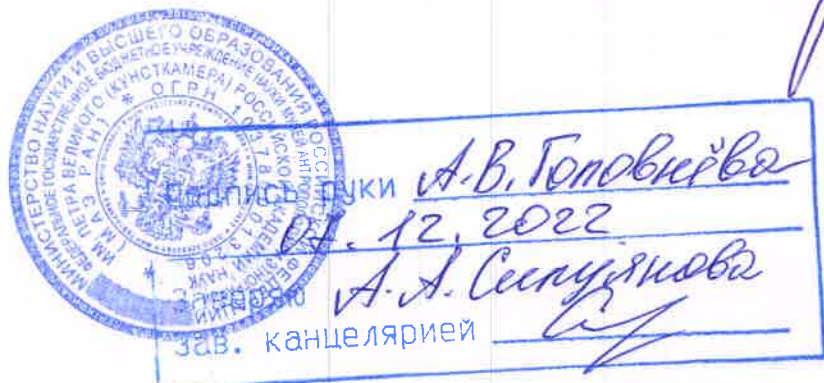 МИНИСТЕРСТВО НАУКИ И ВЫСШЕГО ОБРАЗОВАНИЯ РОССИЙСКОЙ ФЕДЕРАЦИИ
ФЕДЕРАЛЬНОЕ ГОСУДАРСТВЕННОЕ БЮДЖЕТНОЕ УЧРЕЖДЕНИЕ НАУКИ МУЗЕЙ АНТРОПОЛОГИИ
ИМ. ПЕТРА ВЕЛИКОГО (КУНСТКАМЕРА) РОССИЙСКОЙ АКАДЕМИИ НАУК
(МАЭ РАН) * ОГРН
Подпись руки А.В. Головнёва
12. 2022
Заверяю А.А.
зав. канцелярией